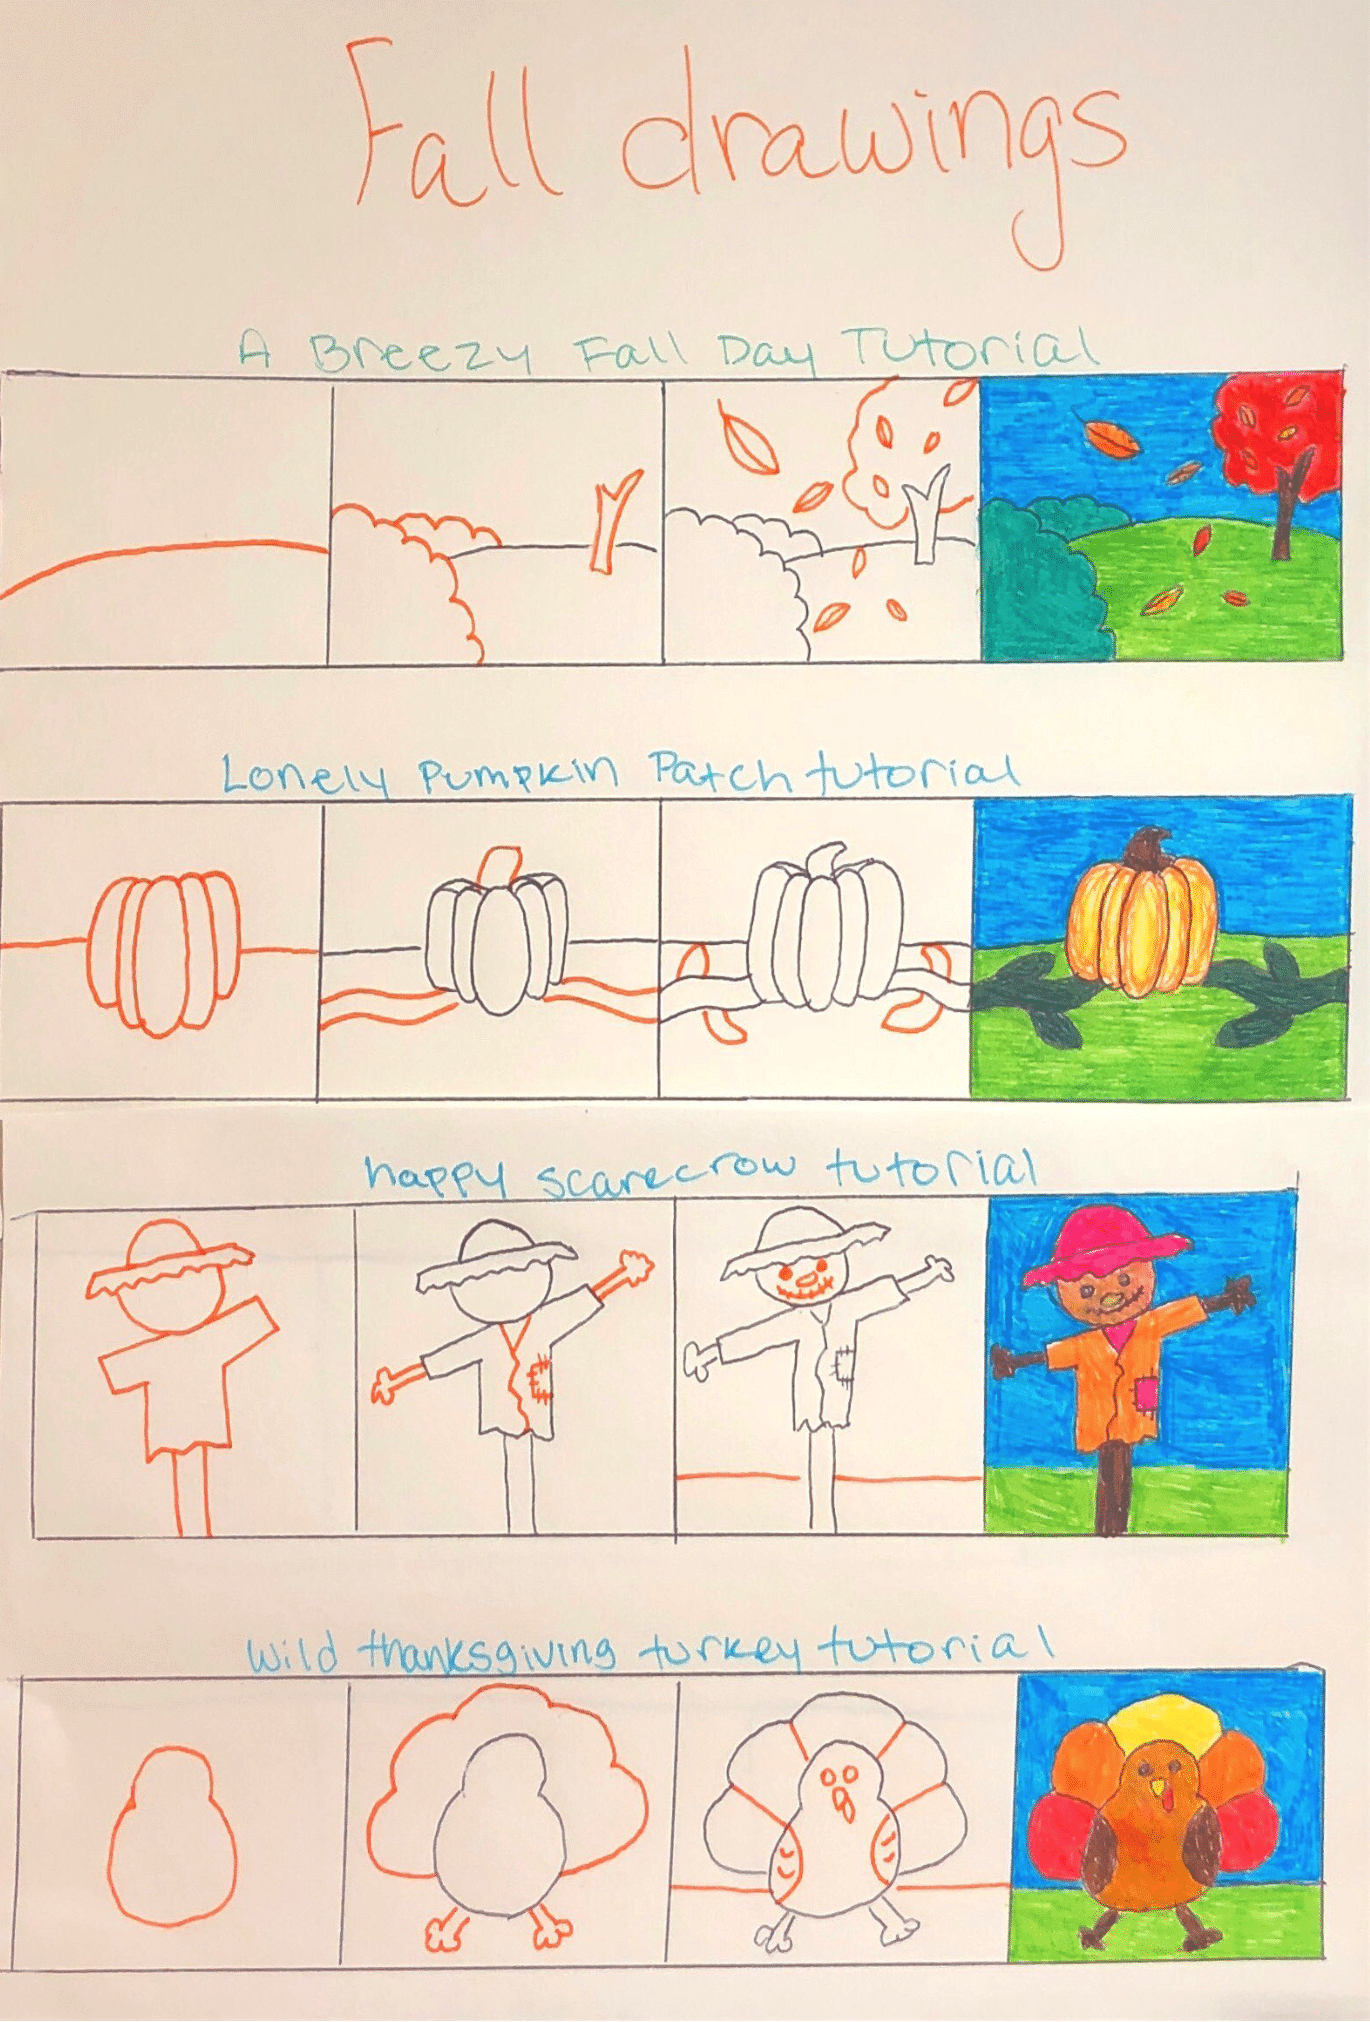 Fall drawings
A Breezy Fall Day Tutorial
Lonely Pumpkin Patch tutorial
happy scarecrow tutorial
Wild thanksgiving turkey tutorial